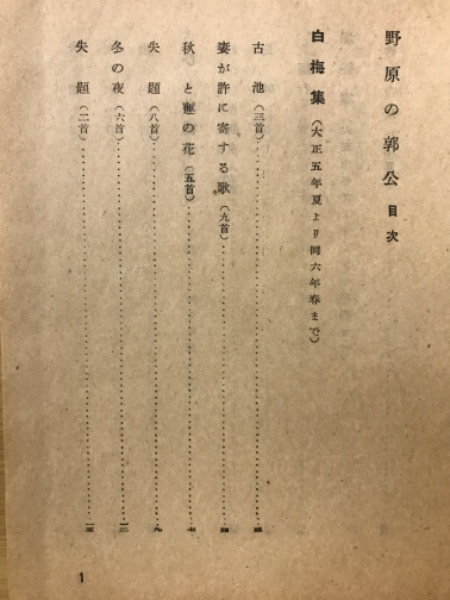 野原の郭公 目次
白梅集（大正五年夏より同六年春まで）
古池（三首）
妻が許に寄する歌（九首）
秋と蓮の花（五首）
失題（八首）……九
冬の夜（六首）……一二
失題（二首）……一五
1